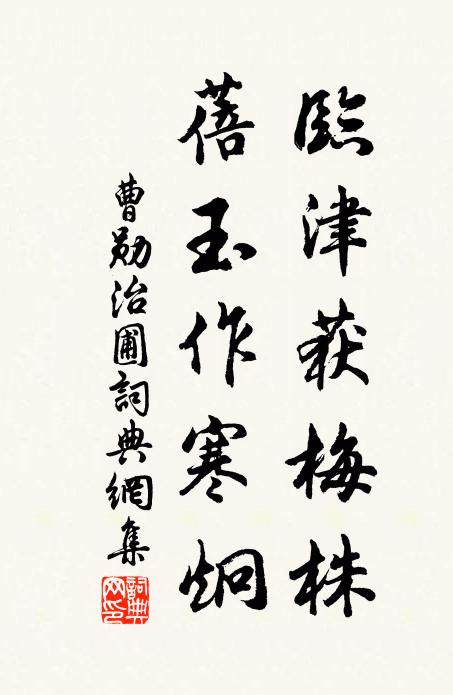 臨津荻梅株
蓓玉作寒炯
曹勛治圃詞典網集
詞典網印